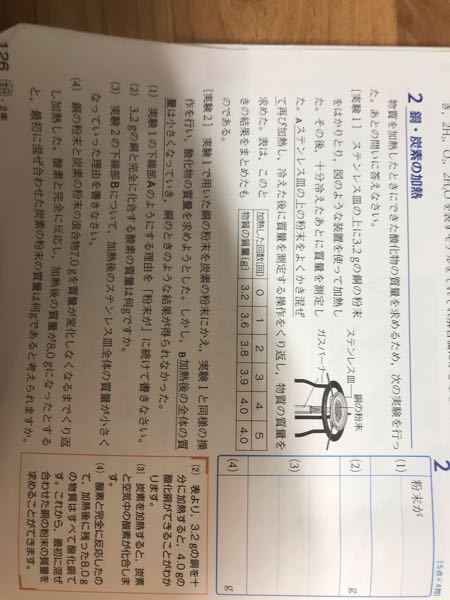 2 銅・炭素の加熱
物質を加熱したときにできた酸化物の質量を求めるため，次の実験を行っ
た。あとの問いに答えなさい。
［実験1］ ステンレス皿の上に3.2gの銅の粉末
をはかりとり，図のような装置を使って加熱し
た。その後，十分冷えたあとに質量を測定し
た。Aステンレス皿の上の粉末をよくかき混ぜ
て再び加熱し，冷えた後に質量を測定する操作をくり返し，物質の質量を
求めた。表は，このと
きの結果をまとめたも
のである。
ステンレス皿
銅の粉末
ガスバーナー
加熱した回数〔回〕 0 1 2 3 4 5
物質の質量〔g〕 3.2 3.6 3.8 3.9 4.0 4.0
［実験2］ 実験1で用いた銅の粉末を炭素の粉末にかえ，実験1と同様の操
作を行い，酸化物の質量を求めようとした。しかし，B加熱後の全体の質
量は小さくなっていき，銅のときのような結果が得られなかった。
(1) 実験1の下線部Aのようにする理由を「粉末が」に続けて書きなさい。
(2) 3.2gの銅と完全に化合する酸素の質量は何gですか。
(3) 実験2の下線部Bについて，加熱後のステンレス皿全体の質量が小さく
なっていった理由を書きなさい。
(4) 銅の粉末と炭素の粉末の混合物7.0gを質量が変化しなくなるまでくり返
し加熱した。酸素と完全に反応し，加熱後の質量が8.0gになったとする
と，最初に混ぜ合わせた炭素の粉末の質量は何gであると考えられますか。
126
大日・2年
2
［5点×4問］
(1)
粉末が
(2)
g
(3)
(4)
g
(2) 表より，3.2gの銅を十
分に加熱すると，4.0gの
酸化銅ができることがわか
ります。
(3) 炭素を加熱すると，炭素
と空気中の酸素が化合しま
す。
(4) 酸素と完全に反応したの
で，加熱後に残った8.0g
の物質はすべて酸化銅で
す。これから，最初に混ぜ
合わせた銅の粉末の質量を
求めることができます。